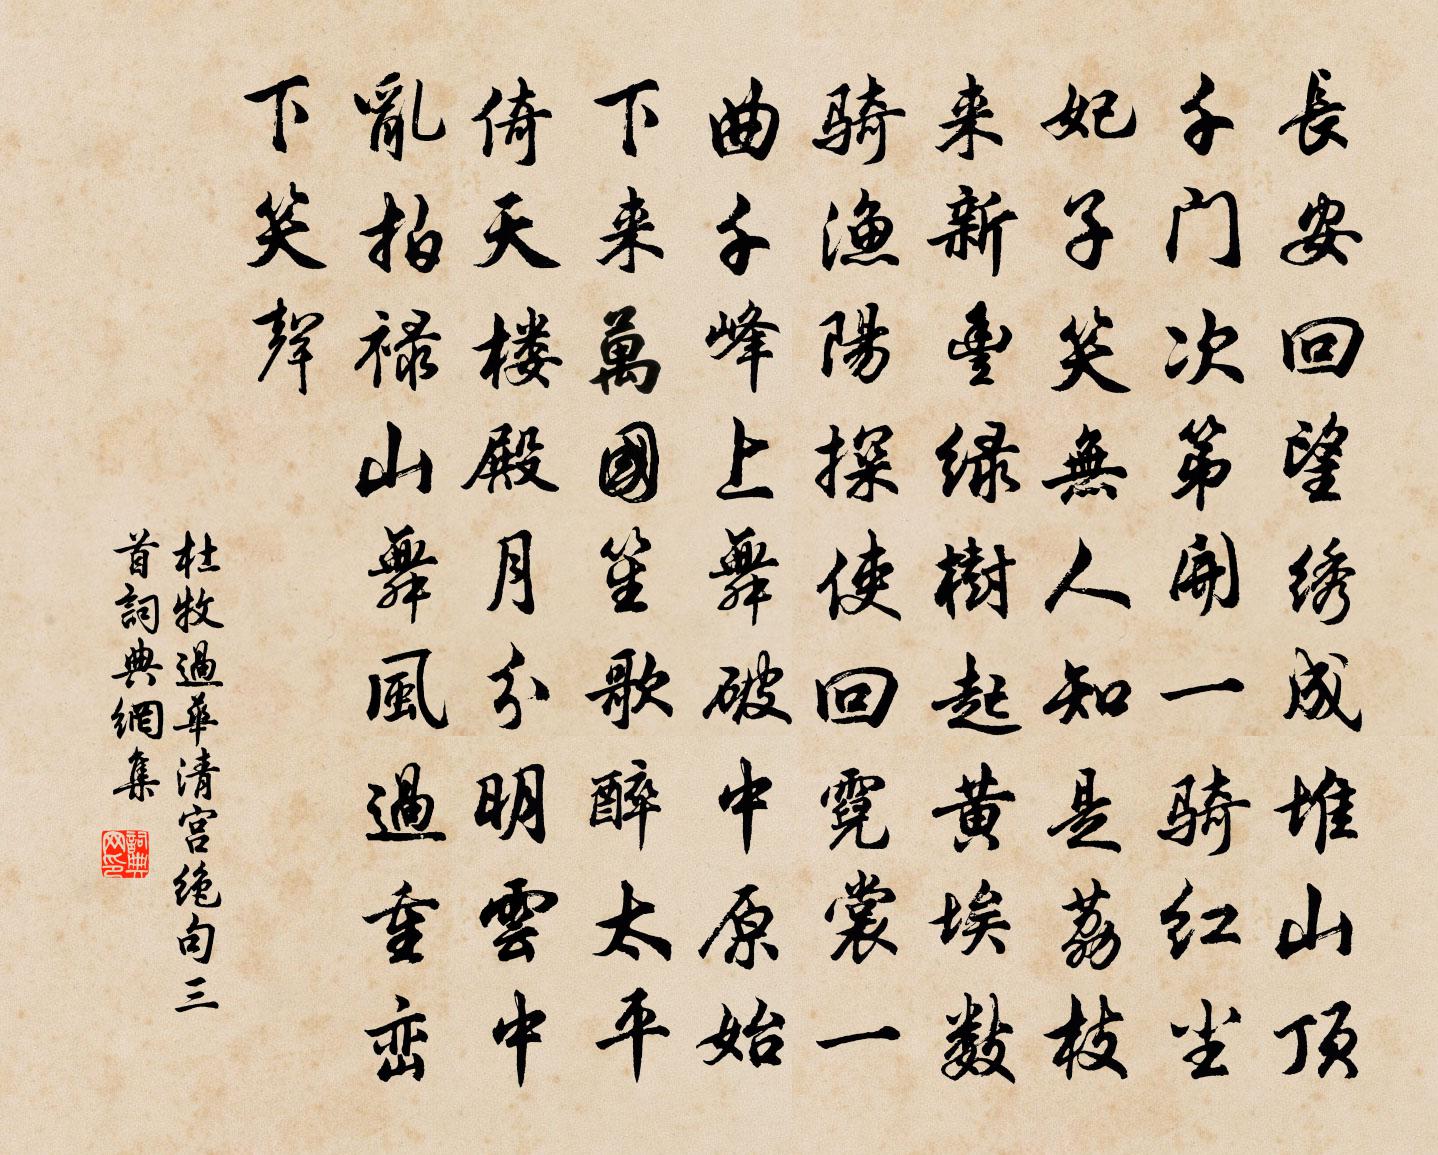 長安回望绣成堆山顶
千门次第開一骑红尘
妃子笑無人知是荔枝
来新豊绿樹起黄埃数
骑渔陽探使回霓裳一
曲千峰上舞破中原始
下来萬國笙歌醉太平
倚天楼殿月分明雲中
亂拍禄山舞風過重峦
下笑聲
杜牧過華清宫绝句三
首詞典網集
詞典网印